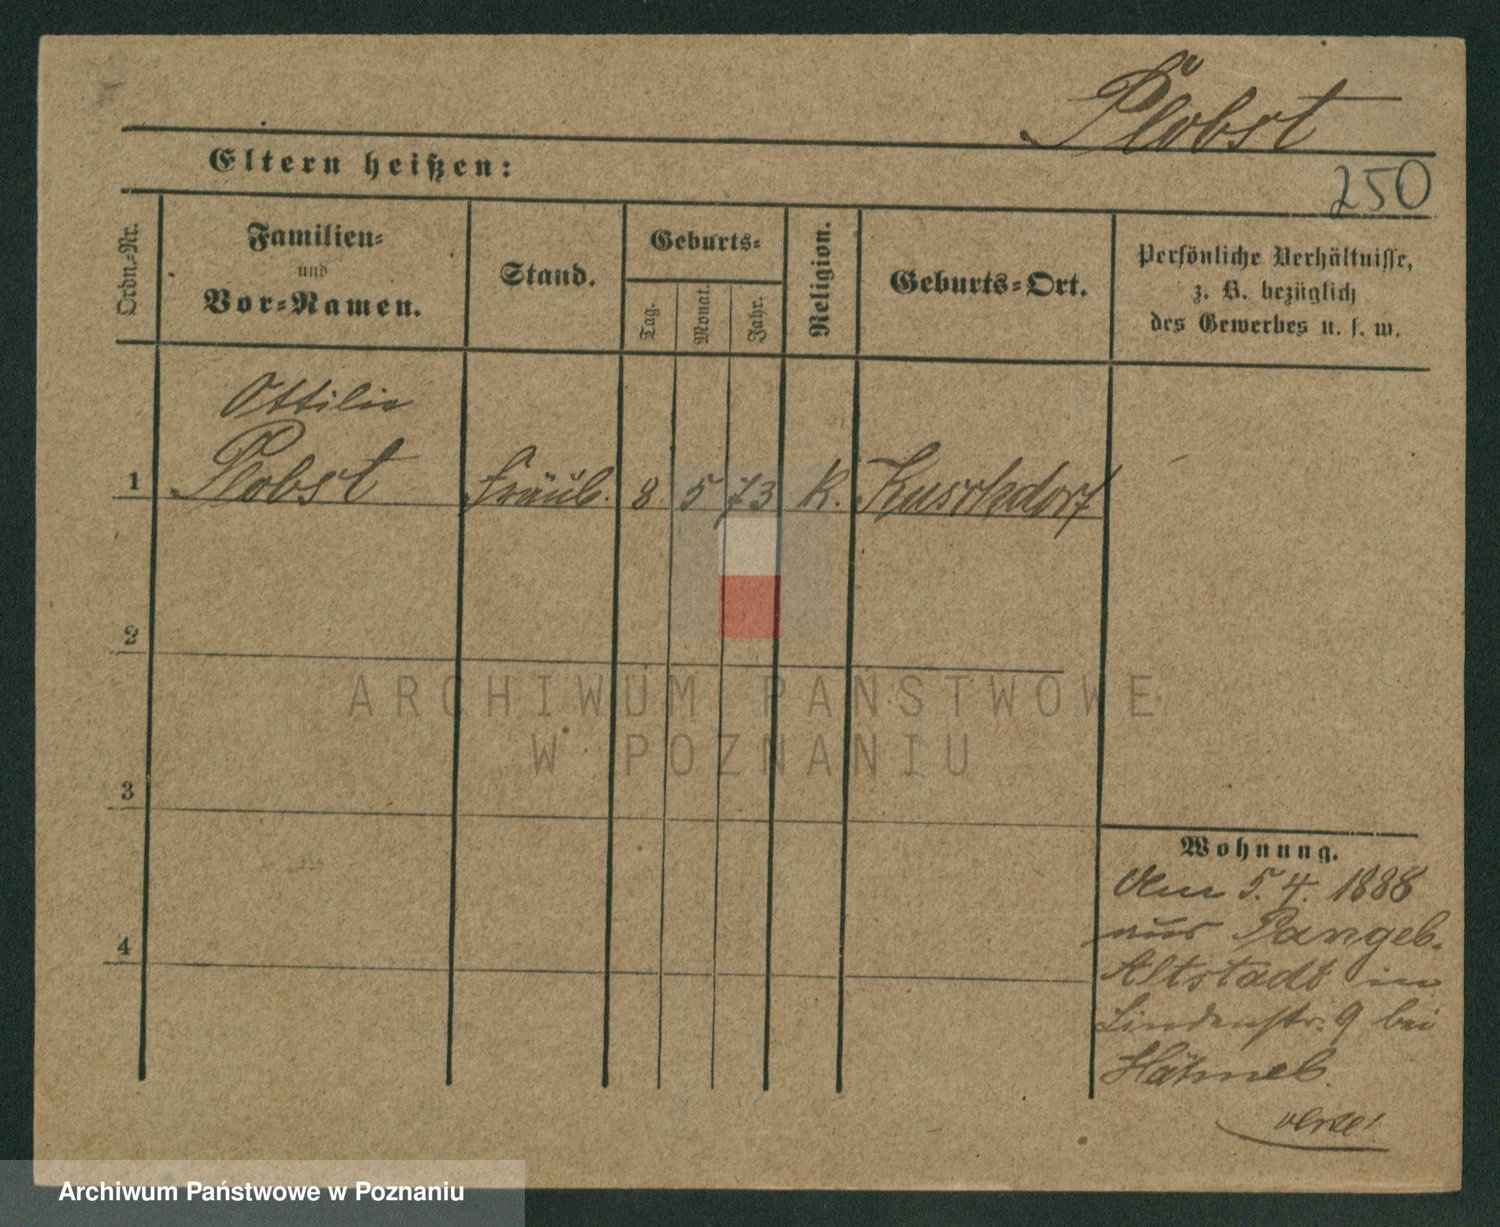 Plobst
Eltern heißen:
250
Ordn.-Nr.
Familien-
und
Vor-Namen.
Stand.
Geburts-
Tag.
Monat.
Jahr.
Religion.
Geburts-Ort.
Persönliche Verhältnisse,
z. B. bezüglich
des Gewerbes u. s. w.
Ottilie
1 Plobst Fräul. 8 5 73 K. Kuschdorf
2
3
4
ARCHIWUM PAŃSTWOWE
W POZNANIU
Wohnung.
Am 5. 4. 1888
aus
Altstadt in
Lindenstr. 9 bei
Archiwum Państwowe w Poznaniu